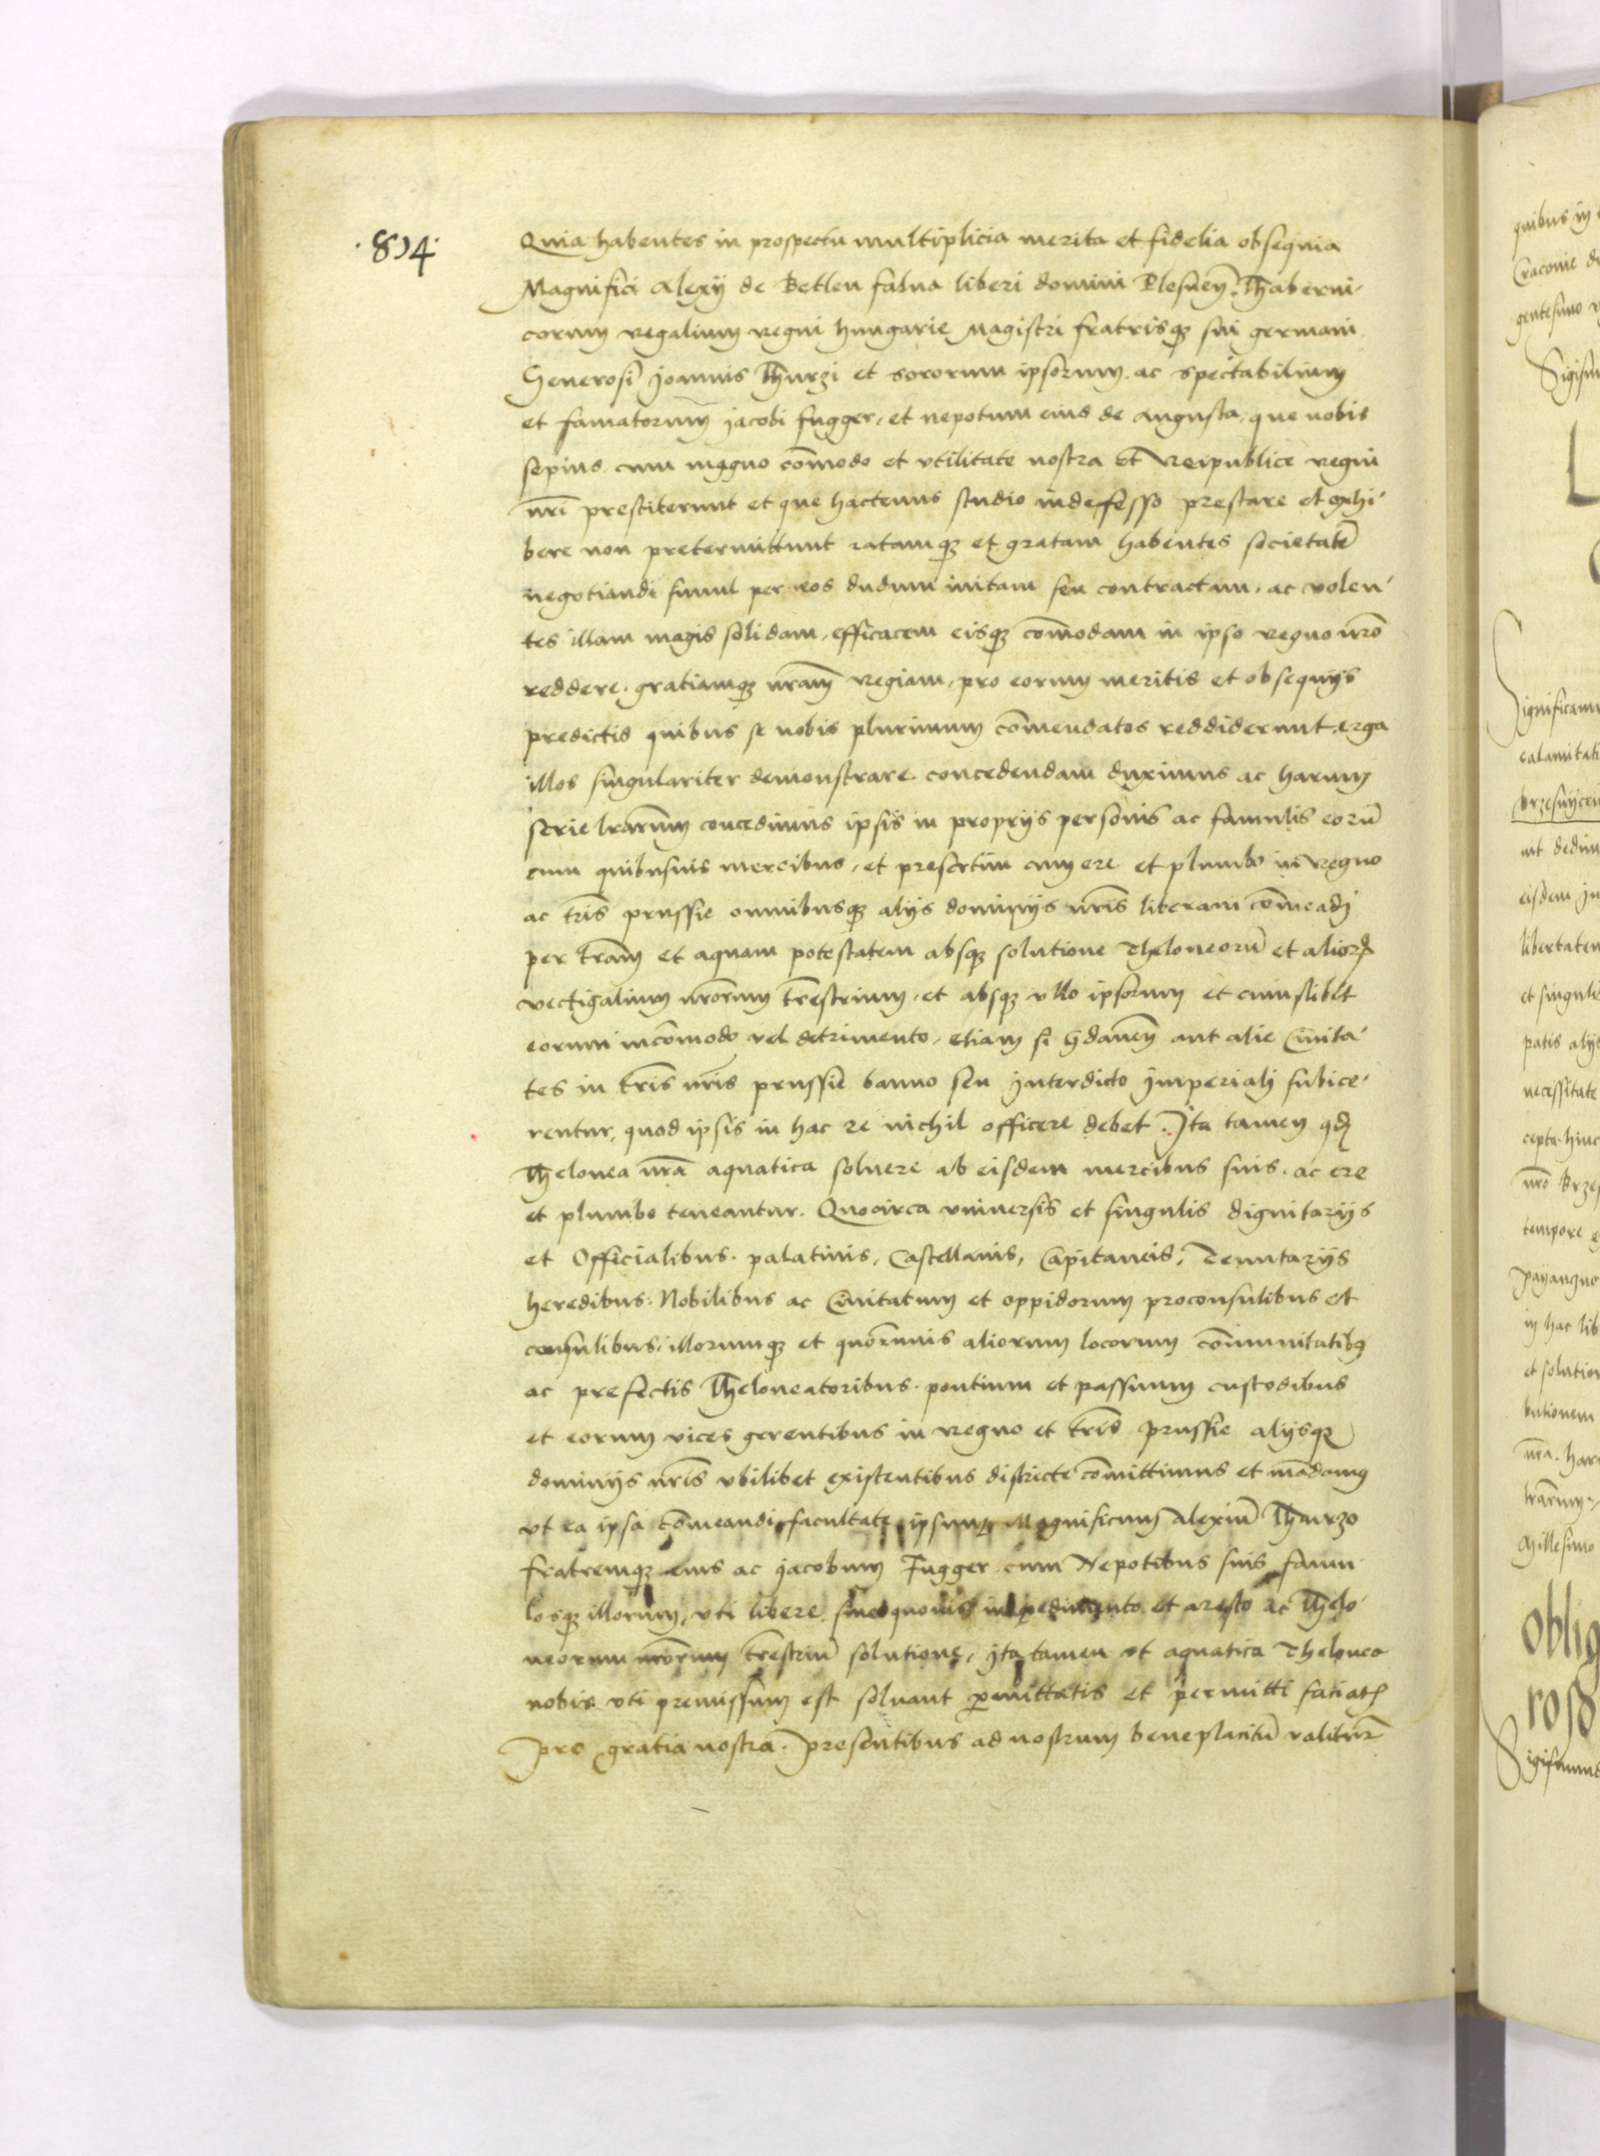 .814.
Quia habentes in prospectu multiplicia merita et fidelia obsequia
Magnifici Alexij de Betlen falva liberi domini Plesneñ. Thaberni-
corum regalium regni hungarie Magistri fratrisq₃ sui germani
Generosi Joannis Thurzi et sororum ipsorum. ac spectabilium
et famatorum Jacobi fugger, et nepotum eius de augusta, que nobis
sepius cum magno cōmodo et vtilitate nostra et Reipublice regni
nr̄i prestiterunt et que hactenus studio indefesso prestare et exhi-
bere non pretermittunt ratamq₃ et gratam habentes societatē
negotiandi simul per eos dudum initam seu contractam. ac volen-
tes illam magis solidam, efficacem eisq₃ cōmodam in ipso regno nr̄o
reddere. gratiamq₃ nr̄am regiam, pro eorum meritis et obsequijs
predictis quibus se nobis plurimum cōmendatos reddiderunt, erga
illos singulariter demonstrare. concedendam duximus ac harum
serie lr̄arum concedimus ipsis in proprijs personis ac famulis eorū
cum quibusuis mercibus, et presertim cum ere et plumbo in regno
ac tr̄is prussie omnibusq₃ alijs dominijs nr̄is liberam cōmeadj
per tr̄am et aquam potestatem absq₃ solutione theloneorū et alior₄
vectigalium nr̄orum tr̄estrium, et absq₃ vllo ipsorum et cuiuslibet
eorum incōmodo vel detrimento, etiam si gdaneñ aut alie Ciuita-
tes in tr̄is nr̄is prussie banno seu Interdicto Imperialj subice-
rentur, quod ipsis in hac re nichil officere debet. Ita tamen qđ
Thelonea nr̄a aquatica soluere ab eisdem mercibus suis. ac ere
et plumbo teneantur. Quocirca vniuersis et singulis dignitarijs
et Officialibus. palatinis, Castellanis, Capitaneis, Tenutarijs
heredibus. Nobilibus ac Ciuitatum et oppidorum proconsulibus et
consulibus, illorumq₃ et quorumuis aliorum locorum cōmunitatibꝰ
ac prefectis Theloneatoribus. pontium et passuum custodibus
et eorum vices gerentibus in regno et tr̄is prussie alijsq₃
dominijs nr̄is vbilibet existentibus districte cōmittimus et mādamꝰ
vt ea ipsa cōmeandi facultate ipsum Magnificum Alexium Thurzo
fratremq₃ eius ac Jacobum Fugger cum Nepotibus suis famu-
losq₃ illorum, vti libere, sine quouis impedimento et aresto ac Thelo-
neorum nr̄orum tr̄estriū solutione, ita tamen vt aquatica thelonea
nobis vti premissum est soluant ꝑmittatis et permitti faciatꝭ
pro gratia nostra. Presentibus ad nostrum beneplacitū valiturꝭ